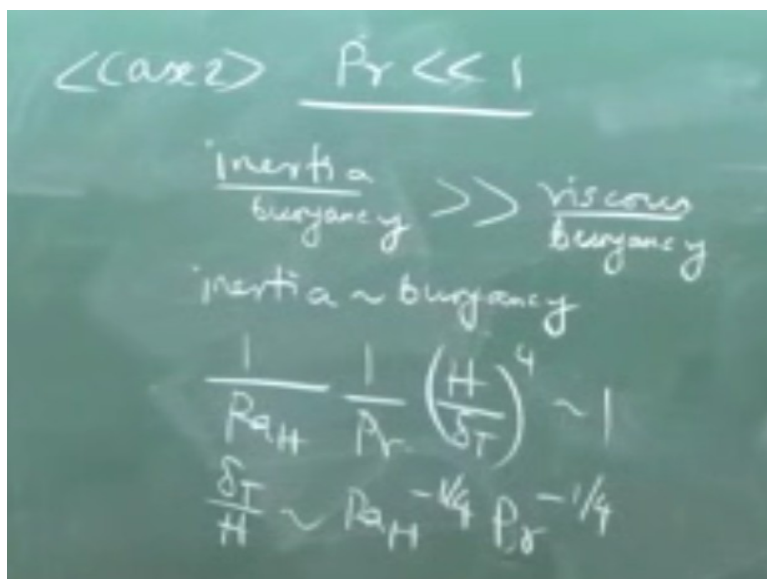 <Case 2> Pr << 1
inertia/buoyancy >> viscous/buoyancy
inertia ~ buoyancy
1/Ra_H 1/Pr (H/δ_T)^4 ~ 1
δ_T/H ~ Ra_H^-1/4 Pr^-1/4